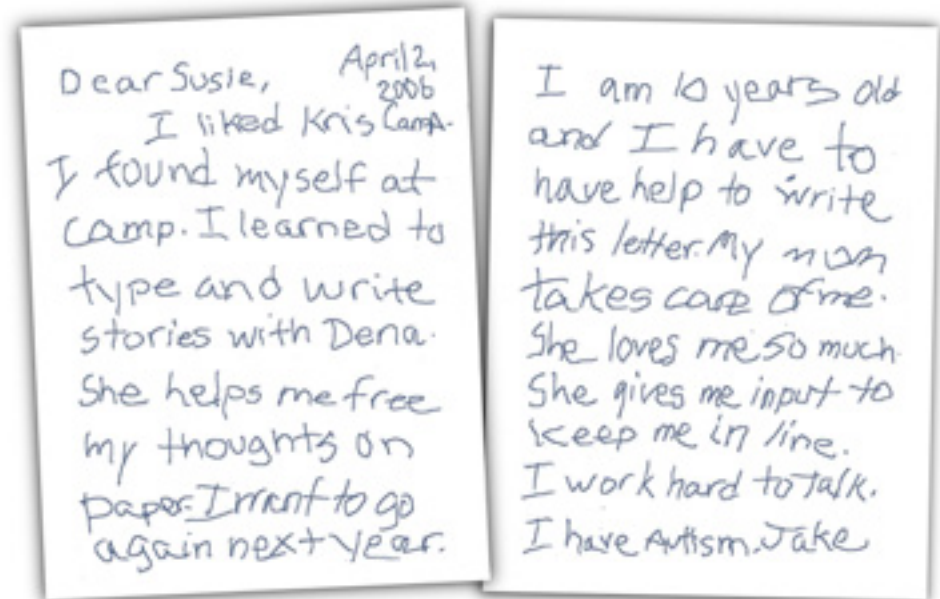 April 2,
Dear Susie, 2006
I liked Kris Camp.
I found myself at
camp. I learned to
type and write
stories with Dena.
She helps me free
my thoughts on
paper. I want to go
again next year.
I am 10 years old
and I have to
have help to write
this letter. My mom
takes care of me.
She loves me so much
She gives me input to
keep me in line.
I work hard to talk.
I have Autism. Jake